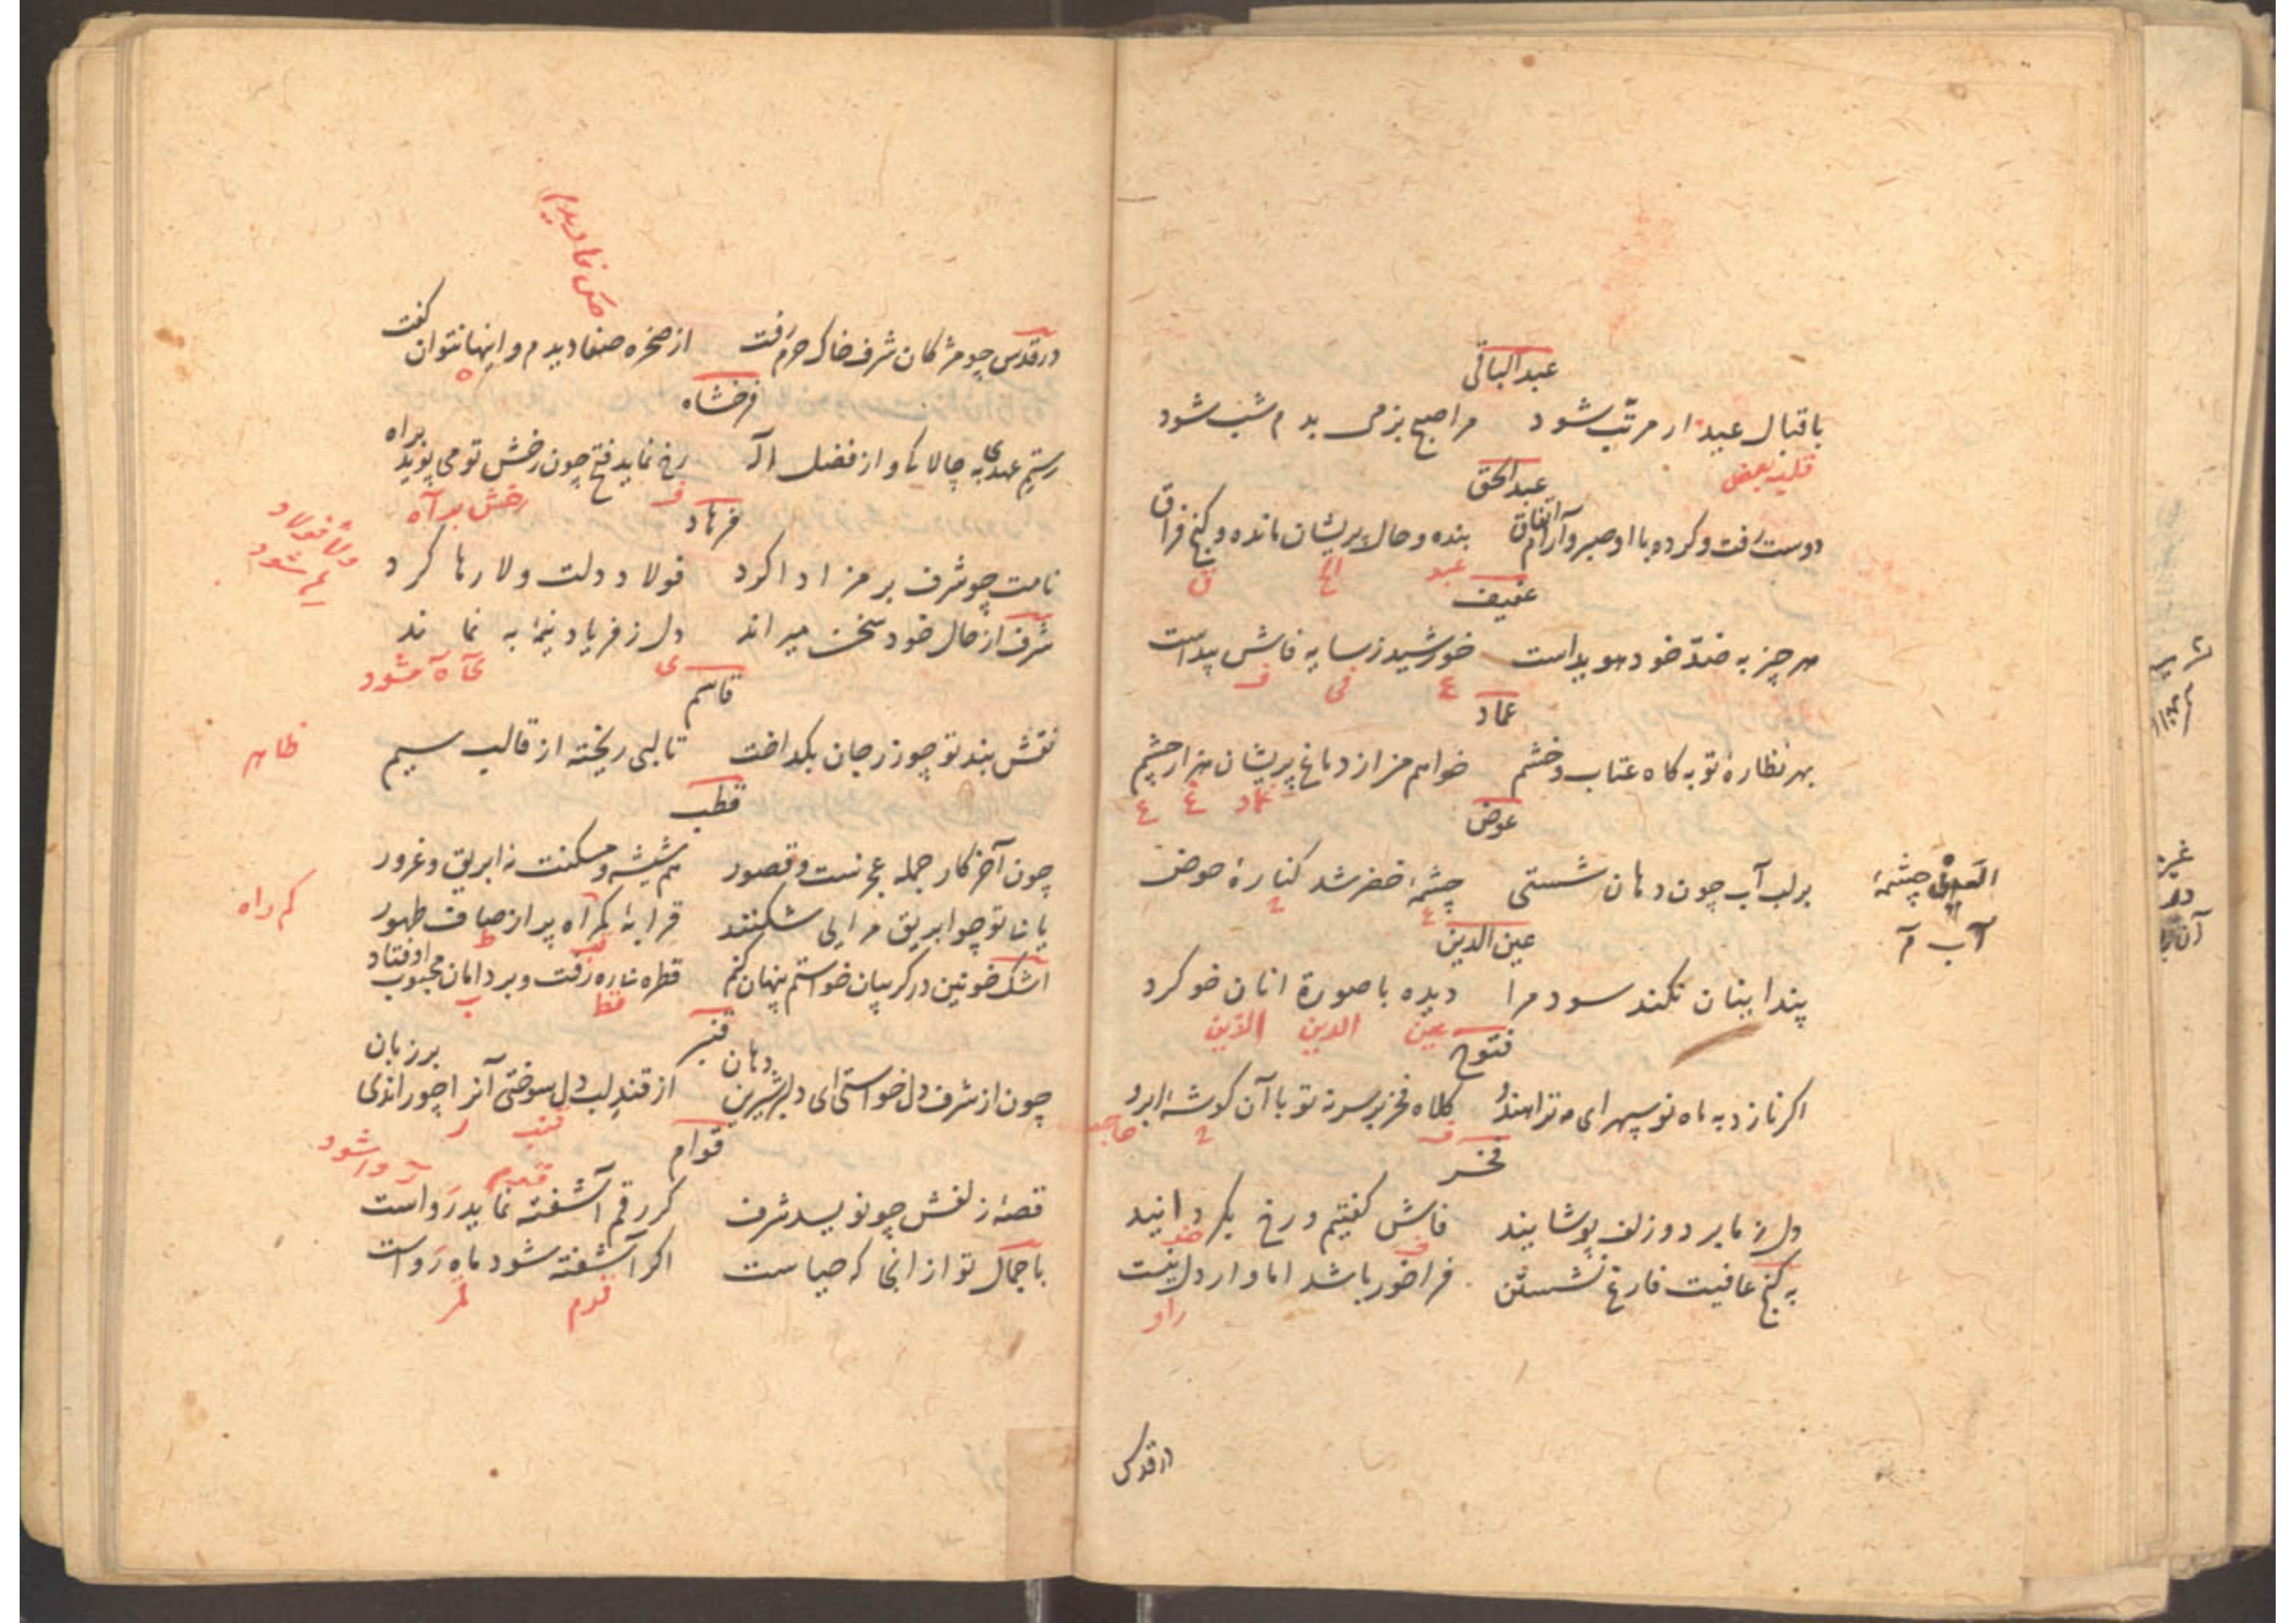 عبدالباقی
باقبال عبید ار مرتب شود مرا صبح بزمی بدم شب شود
قلب بعض
عبدالحق
دوست رفت و کرده با او صبر و آرام اتفاق بنده و حال پریشان مانده و کنج فراق
عبد الح ق
عفیف
هر چیز به ضد خود هویداست خورشید ز سایه فاش پیداست
ع فی ف
عماد
بهر نظاره تو به کاه عتاب و خشم خواهم من از دماغ پریشان هزار چشم
عماد ع ع
عوض
بر لب آب چون دهان شستی چشمهٔ خضر شد کنارهٔ حوض
العین چشمهٔ
آب م
عین الدین
پند ابنان نکند سود مرا دیده با صورة انان خو کرد
عین الدین الدین
فتوح
اکر نازد به ماه نو سپهر ای مه ترا هندو کلاه فخر بر سر نه تو با آن کوشهٔ ابرو
ف ح حاجب
فخر
دل ز ما برد و زلف پوشانید فاش کفتیم و رخ بکردانید
به کنج عافیت فارغ نشستن فراخور باشد اما وار دل نیست
راو
در قدس
در قدس چو مژکان شرف خاک حرم رفت از صخره صفا دیدم و اینها نتوان کفت
فرخشاه
رستم عهدی به چالاکی و از فضل اله رخ نماید فتح چون رخش تو می پوید براه
ف رخش بد آه
فرهاد
نامت چو شرف بر مز ادا کرد فولاد دولت ولا رها کرد
شرف از حال خود سخن میراند دل ز فریاد نیمهٔ به نماند
ی
قاسم
نقش بند تو چو زر جان بکداخت تا لبی ریخته از قالب سیم
ظاهر
قطب
چون آخر کار جمله عجزست و قصور هم شیشه و مسکنت نه ابریق و غرور
یا ما تو چو ابریق مرا بی شکنند قرابهٔ کمراه پر از صاف طهور
کم راه
اشک خونین در کریبان خواستم پنهان کنم قطره ناره رفت و بر دامان محبوب اوفتاد
قط ب
قنبر
چون از شرف دل خواستی ای دلبر شیرین دهان از قند لب دل سوختی آنرا چو راندی بر زبان
قنب ر
قوام
قصهٔ زلفش چو نویسد شرف کر رقم آشفته نماید رواست
با جمال تو از انجا که حیاست اکر آشفته شود ماه رواست
قدم